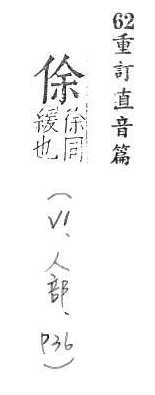 62重訂直音篇
俆
徐同
緩也
(VI、人部、P36)